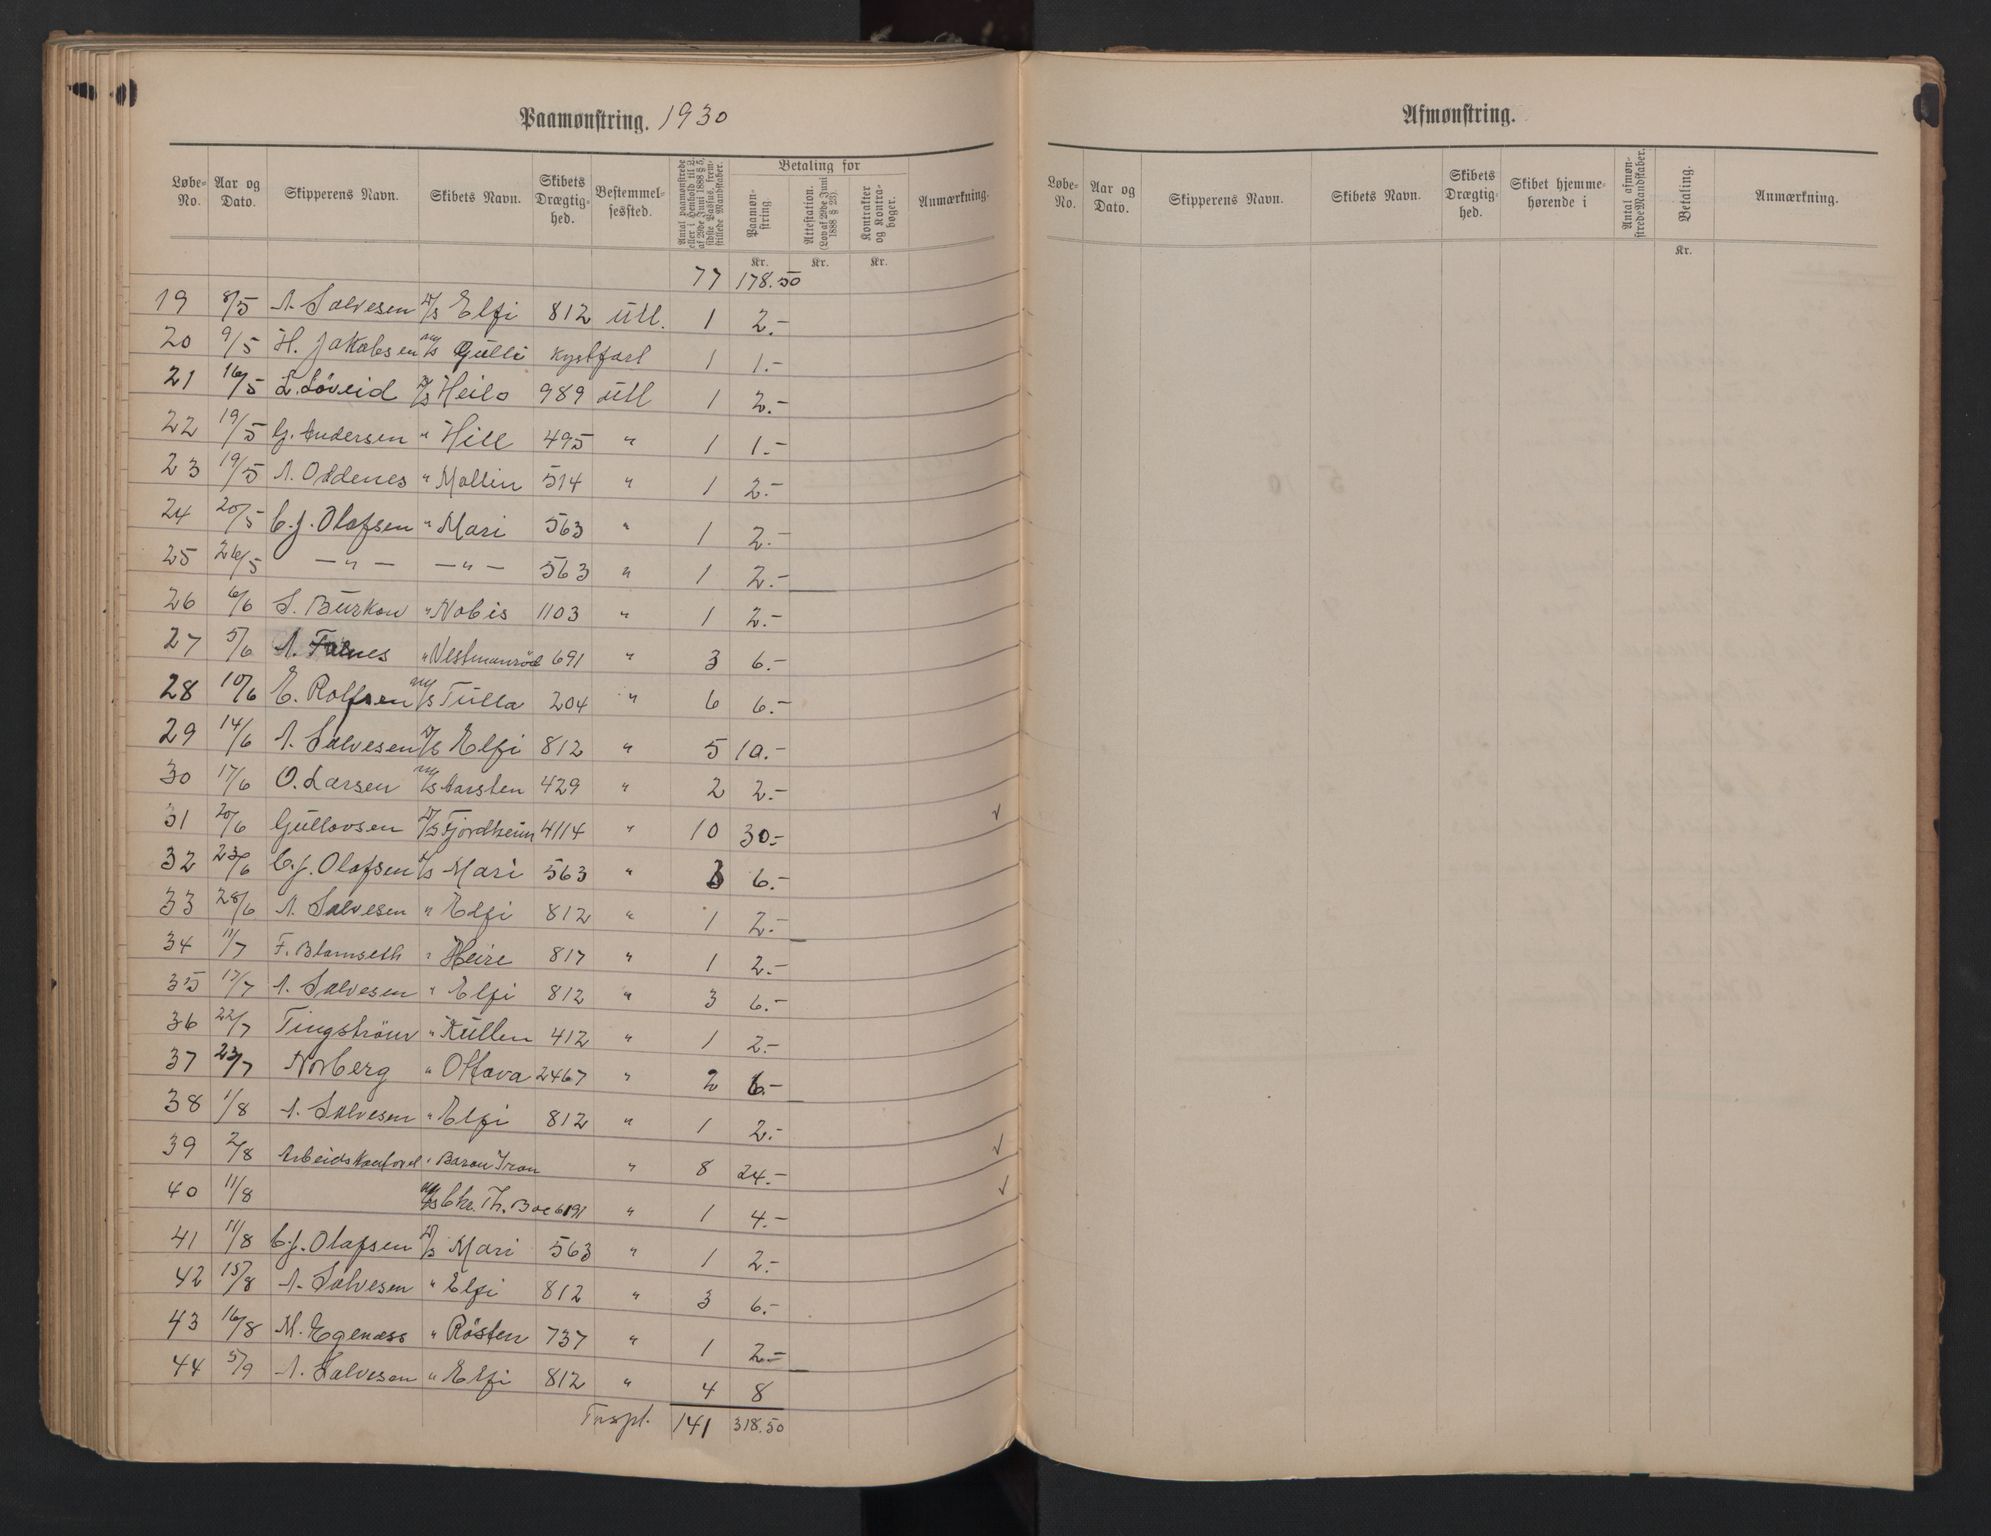 Paamønstring. 1930
Løbe-No. Aar og Dato. Skipperens Navn. Skibets Navn. Skibets Drægtighed. Bestemmelsessted. Antal paamønstrede eller i Henhold til L. af 29de Juni 1888 § 5, sidste Passus, fremstillede Mandskaber. Betaling for Paamønstring. Attestation. (Lov af 29de Juni 1888 § 23). Kontrakter og Kontrabøger. Anmærkning.
Kr. Kr. Kr.
77 178.50
19 8/5 A. Salvesen D/S Elfi 812 Utl. 1 2.-
20 9/5 H. Jakobsen M/S Gulli Kystfart 1 1.-
21 16/5 L. Løveid D/S Heilo 989 Utl 1 2.-
22 19/5 G. Andersen " Hill 495 " 1 1.-
23 19/5 A. Oddenes " Mallin 514 " 1 2.-
24 20/5 C.J. Olafsen " Mari 563 " 1 2.-
25 26/5 — " — — " — 563 " 1 2.-
26 6/6 S. Burkow " Nobis 1103 " 1 2.-
27 5/6 A. " Vestmanrød 691 " 3 6.-
28 10/6 E. Rolfsen M/S Tulla 204 " 6 6.-
29 14/6 A. Salvesen D/S Elfi 812 " 5 10.-
30 17/6 O. Larsen M/S Karsten 429 " 2 2.-
31 20/6 Gullovsen D/S Fjordheim 4114 " 10 30.- ✓
32 23/6 C.J. Olafsen D/S Mari 563 " 3 6.-
33 28/6 A. Salvesen " Elfi 812 " 1 2.-
34 11/7 F. Blomseth " Heire 817 " 1 2.-
35 17/7 A. Salvesen " Elfi 812 " 3 6.-
36 22/7 Tingström " Kullen 412 " 1 2.-
37 23/7 Norberg " Ottava 2467 " 2 6.-
38 1/8 A. Salvesen " Elfi 812 " 1 2.-
39 2/8 Arbeidskontoret " Baron Tron " 8 24.- ✓
40 11/8 M/S Chr. Th. Boe 6191 " 1 4.- ✓
41 11/8 C.J. Olafsen D/S Mari 563 " 1 2.-
42 15/8 A. Salvesen " Elfi 812 " 3 6.-
43 16/8 M. Egenæss " Røsten 737 " 1 2.-
44 5/9 A. Salvesen " Elfi 812 " 4 8
Trspt. 141 318.50
Afmønstring.
Løbe-No. Aar og Dato. Skipperens Navn. Skibets Navn. Skibets Drægtighed. Skibet hjemmehørende i Antal afmønstrede Mandskaber. Betaling. Anmærkning.
Kr.